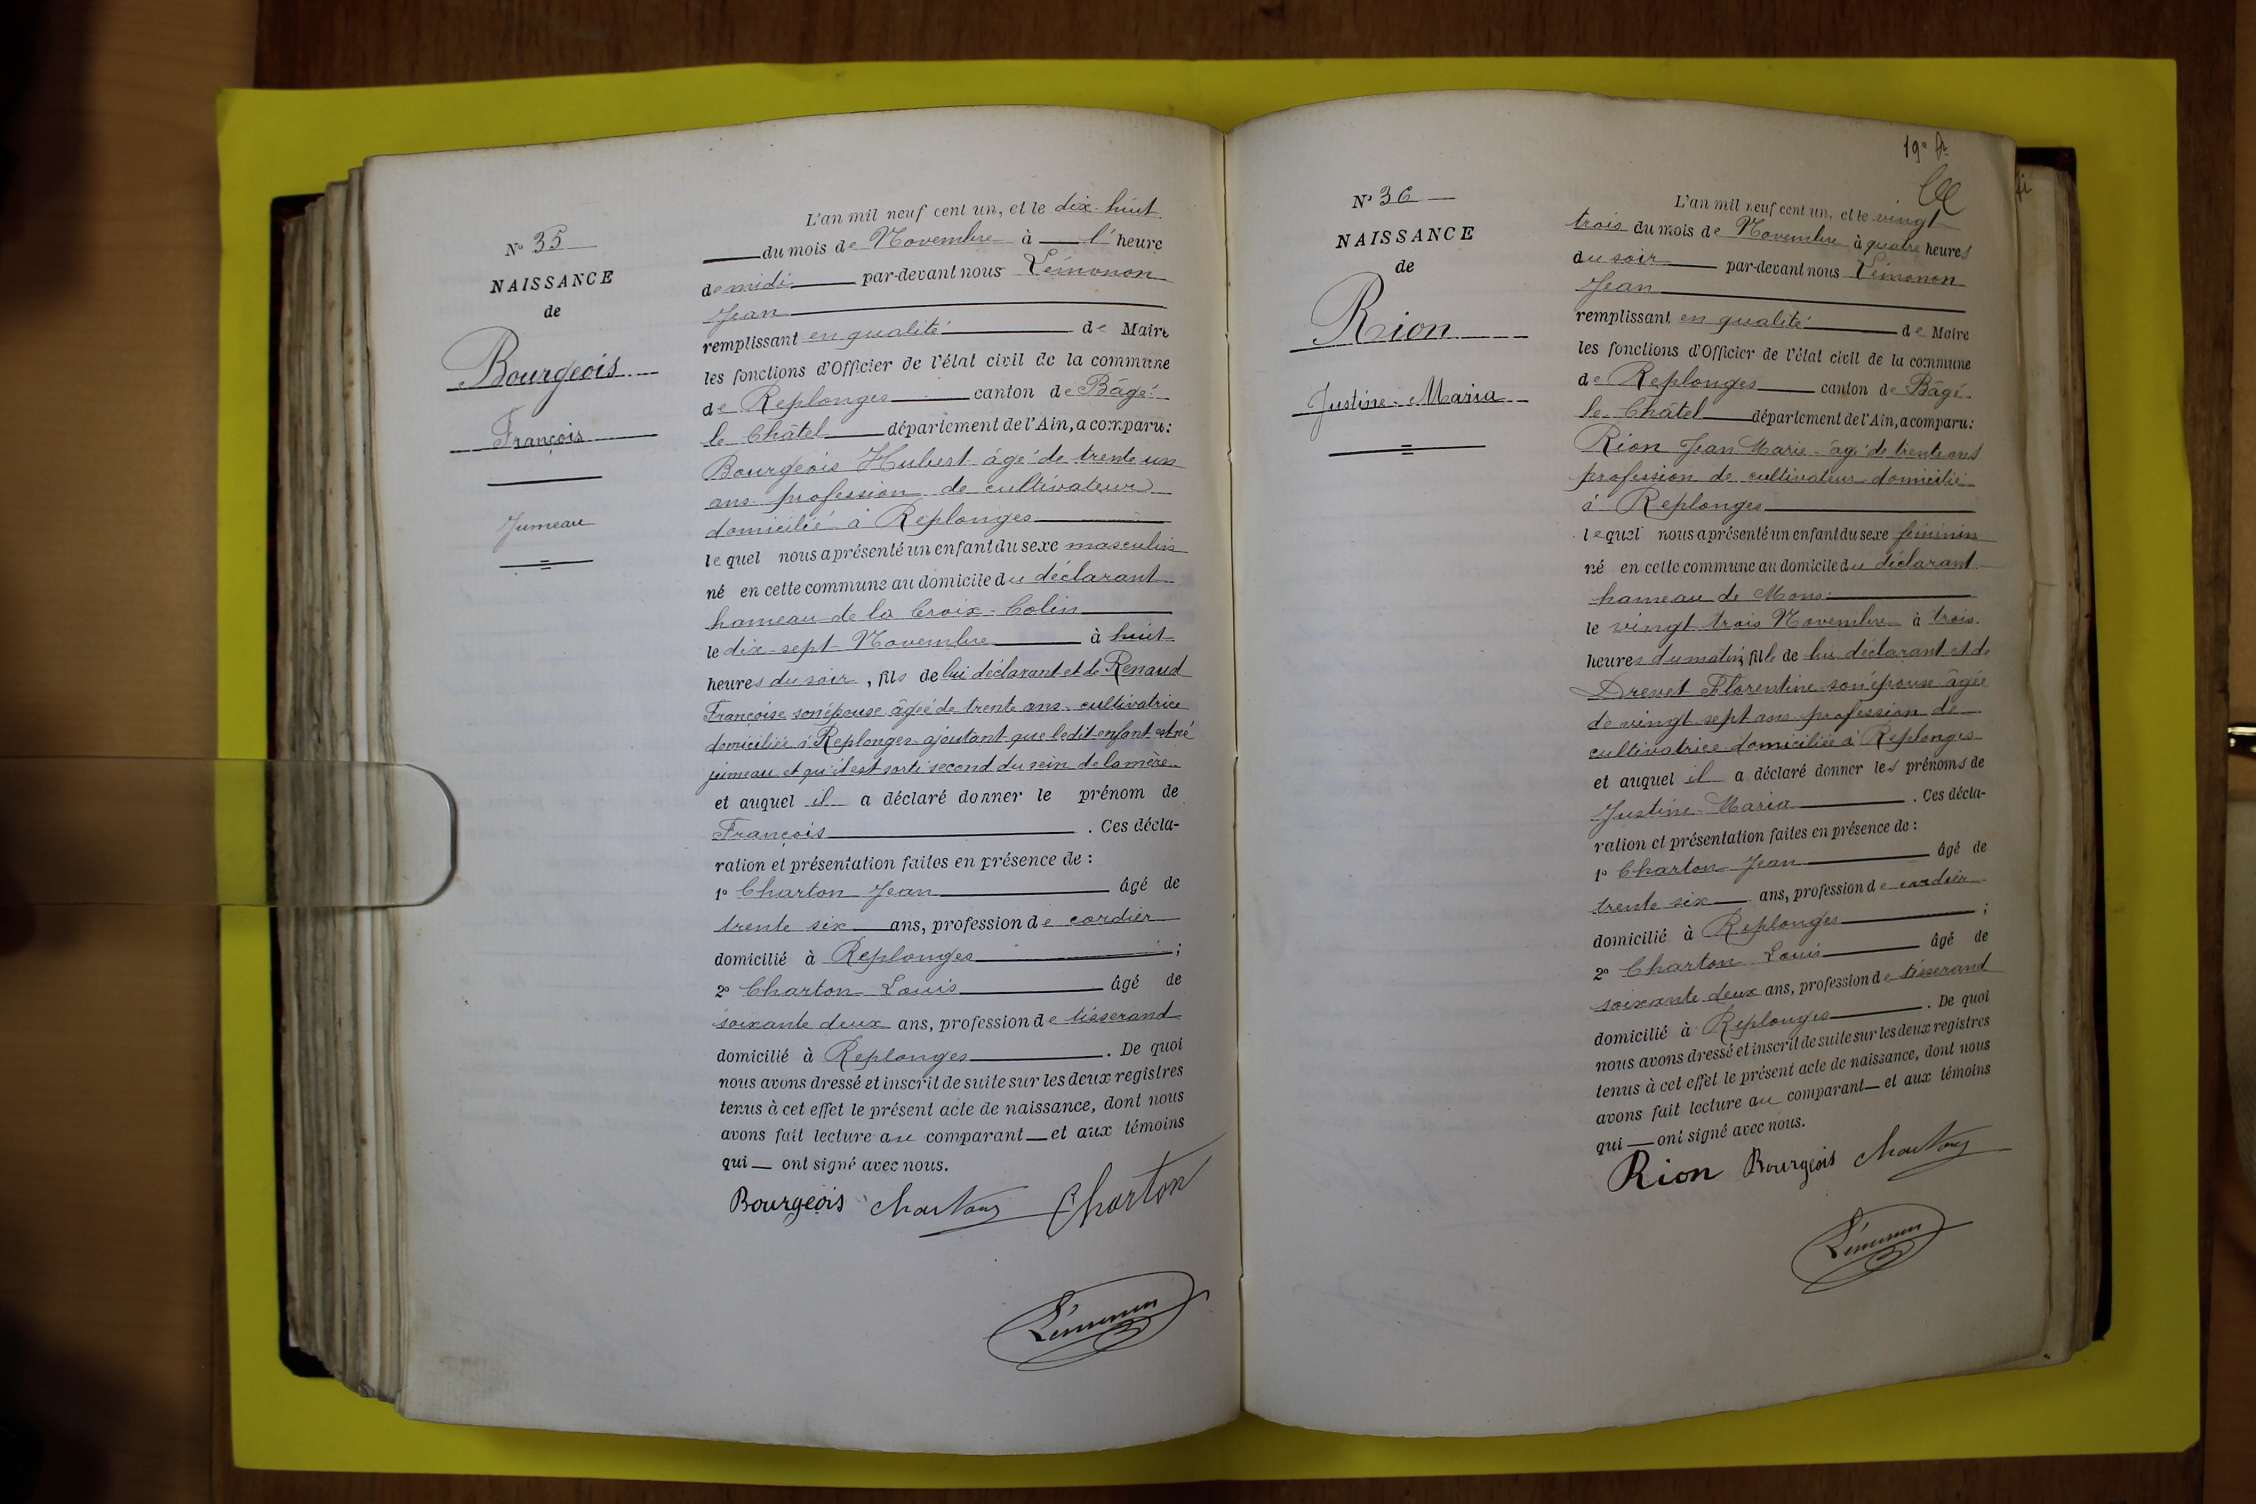 N° 35
NAISSANCE
de
Bourgeois
François
Jumeau
L'an mil neuf cent un, et le dix-huit
du mois de Novembre à l' heure
de midi par-devant nous Lémonon
Jean
remplissant en qualité de Maire
les fonctions d'Officier de l'état civil de la commune
de Replonges canton de Bâgé-
le Châtel département de l'Ain, a comparu:
Bourgeois Hubert âgé de trente un
ans profession de cultivateur
domicilié à Replonges
lequel nous a présenté un enfant du sexe masculin
né en cette commune au domicile du déclarant
hameau de la Croix-Colin
le dix-sept Novembre à huit
heures du soir, fils de lui déclarant et de Renaud
Françoise son épouse âgée de trente ans cultivatrice
domiciliée à Replonges ajoutant que ledit enfant est né
jumeau et qu'il est sorti second du sein de la mère
et auquel il a déclaré donner le prénom de
François . Ces décla-
ration et présentation faites en présence de :
1° Charton Jean âgé de
trente six ans, profession de cordier
domicilié à Replonges ;
2° Charton Louis âgé de
soixante deux ans, profession de tisserand
domicilié à Replonges . De quoi
nous avons dressé et inscrit de suite sur les deux registres
tenus à cet effet le présent acte de naissance, dont nous
avons fait lecture au comparant et aux témoins
qui ont signé avec nous.
Bourgeois Charton Charton
Lémonon
19e
N° 36
NAISSANCE
de
Rion
Justine-Maria
L'an mil neuf cent un, et le vingt
trois du mois de Novembre à quatre heures
du soir par-devant nous Lémonon
Jean
remplissant en qualité de Maire
les fonctions d'Officier de l'état civil de la commune
de Replonges canton de Bâgé-
le Châtel département de l'Ain, a comparu:
Rion Jean Marie âgé de trente ans
profession de cultivateur domicilié
à Replonges
lequel nous a présenté un enfant du sexe féminin
né en cette commune au domicile du déclarant
hameau de Mons
le vingt trois Novembre à trois
heures du matin, fille de lui déclarant et de
Drevet Florentine son épouse âgée
de vingt sept ans profession de
cultivatrice domiciliée à Replonges
et auquel il a déclaré donner les prénoms de
Justine-Maria . Ces décla-
ration et présentation faites en présence de :
1° Charton Jean âgé de
trente six ans, profession de cordier
domicilié à Replonges ;
2° Charton Louis âgé de
soixante deux ans, profession de tisserand
domicilié à Replonges . De quoi
nous avons dressé et inscrit de suite sur les deux registres
tenus à cet effet le présent acte de naissance, dont nous
avons fait lecture au comparant et aux témoins
qui ont signé avec nous.
Rion Bourgeois Charton
Lémonon